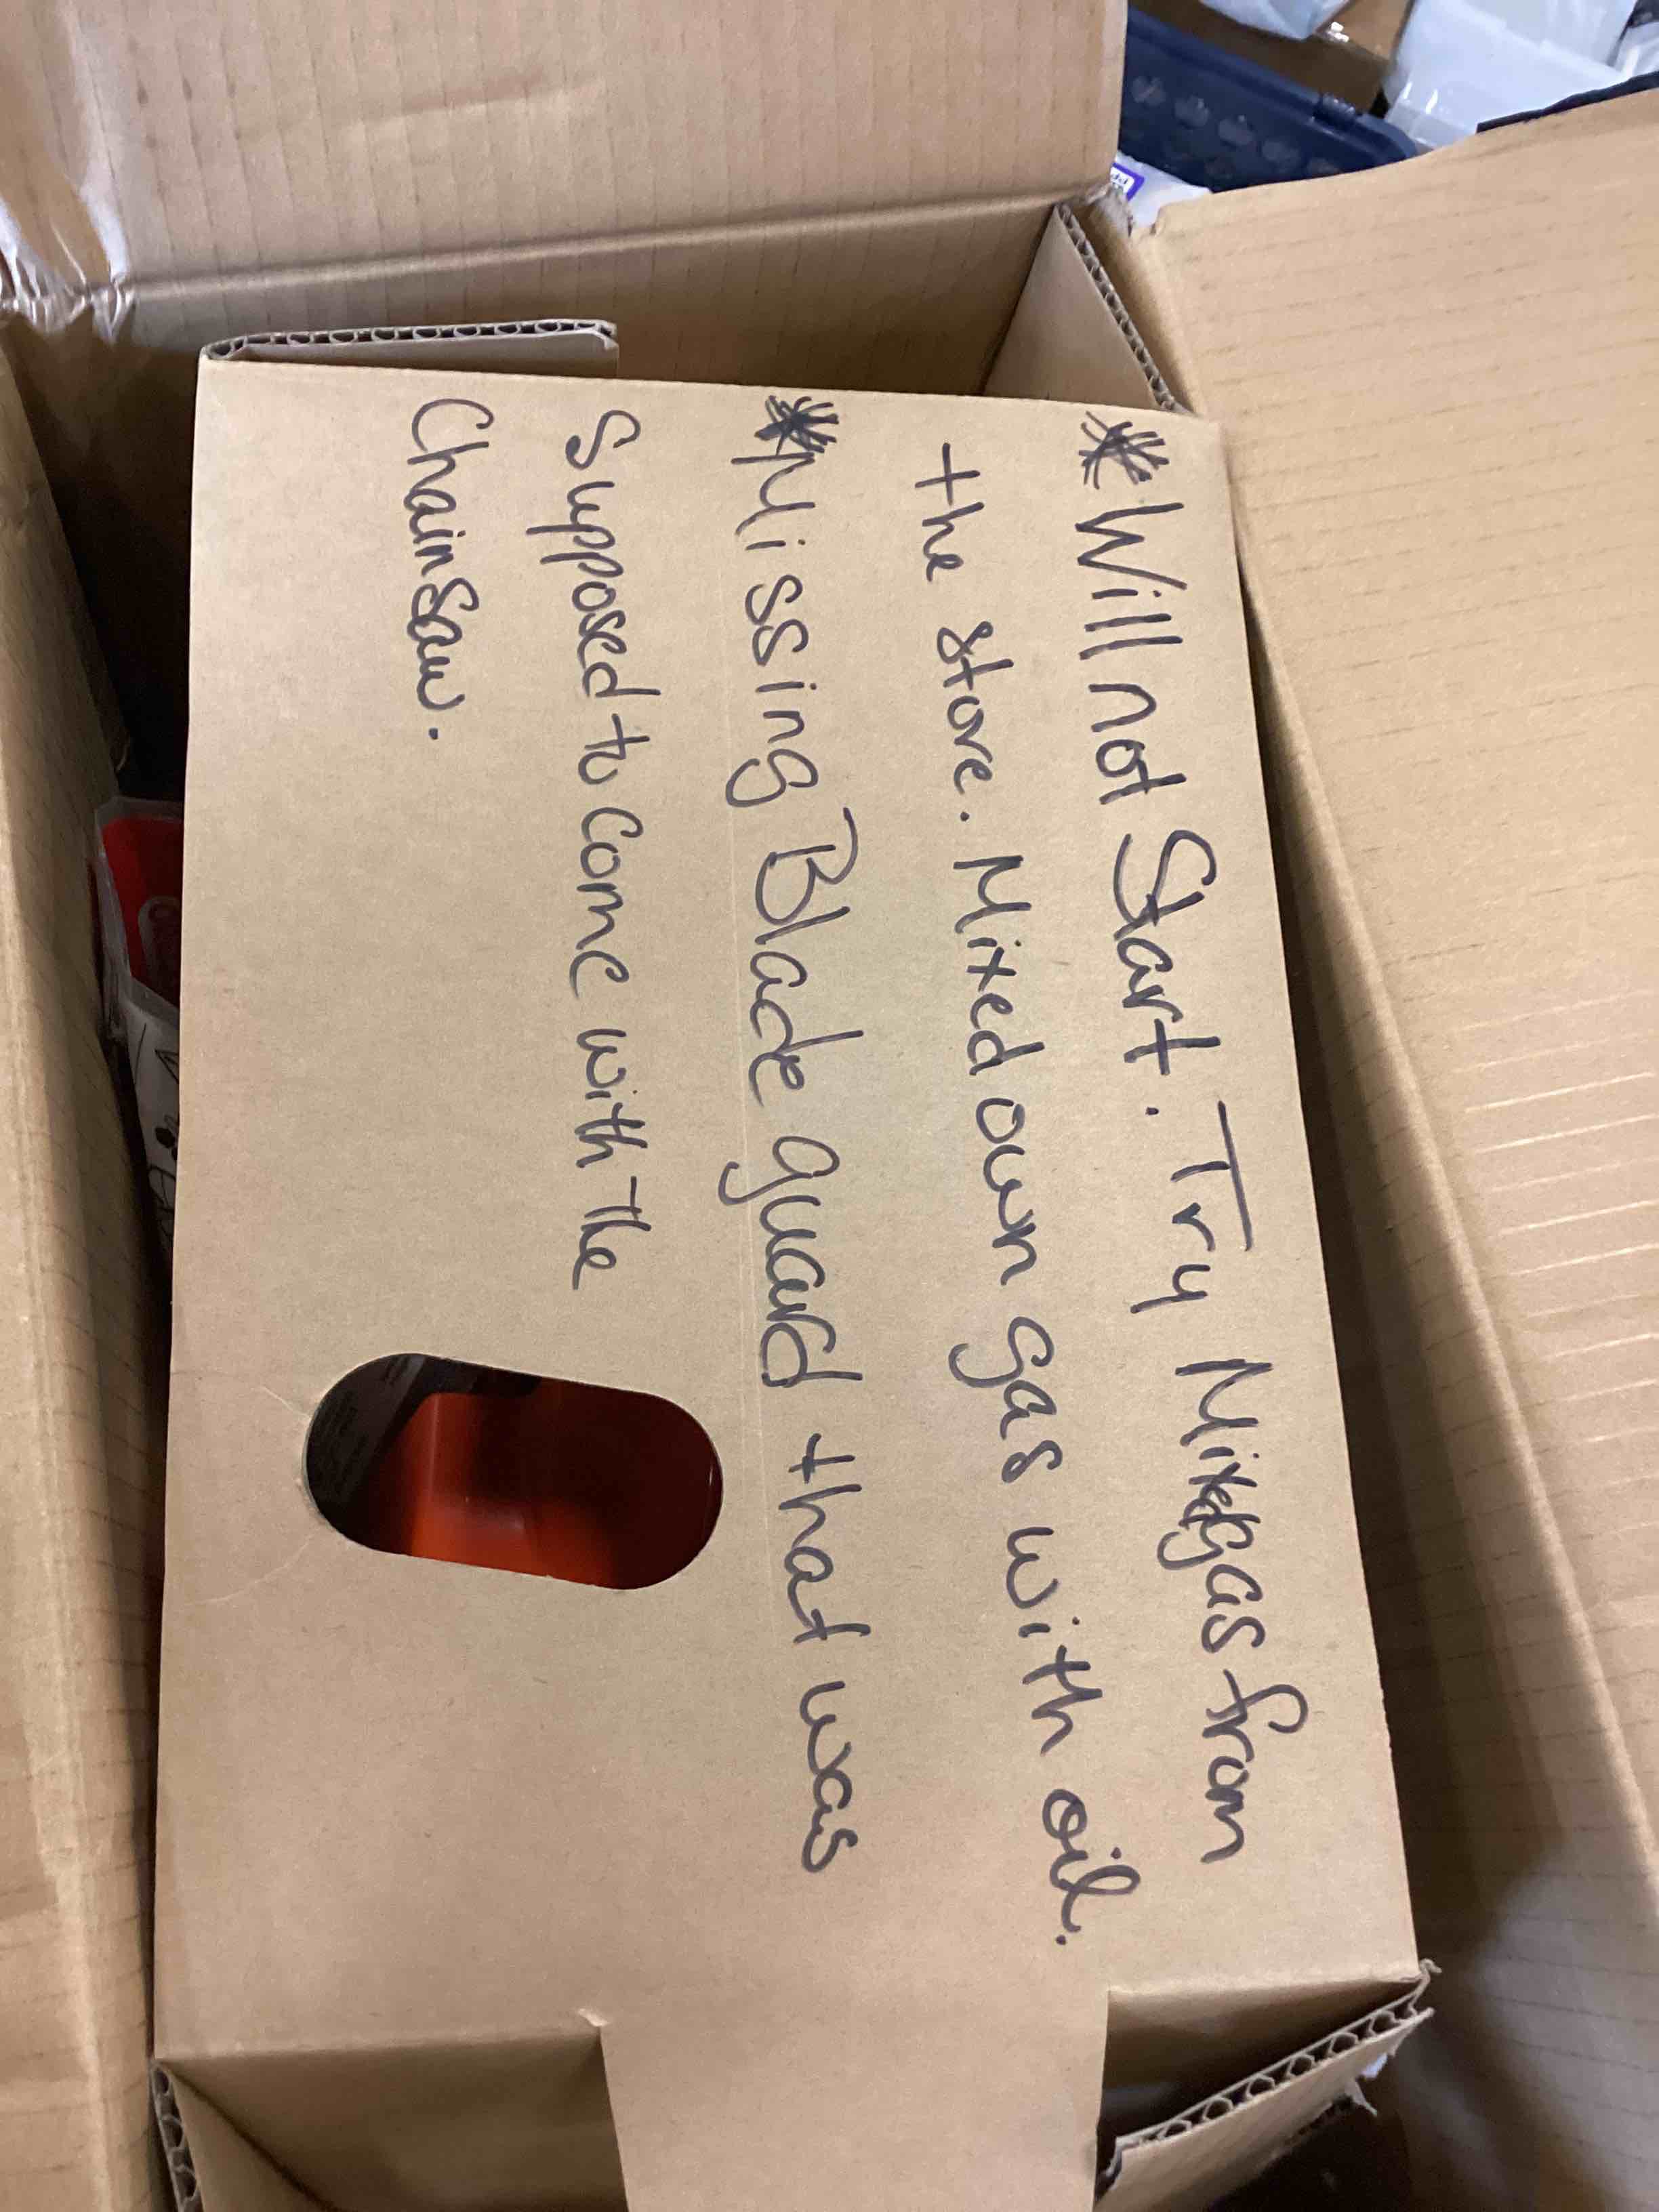 * Will not Start. Try Mixed gas from
the store. Mixed own gas with oil.
* Missing Blade guard that was
Supposed to Come with the
Chainsaw.